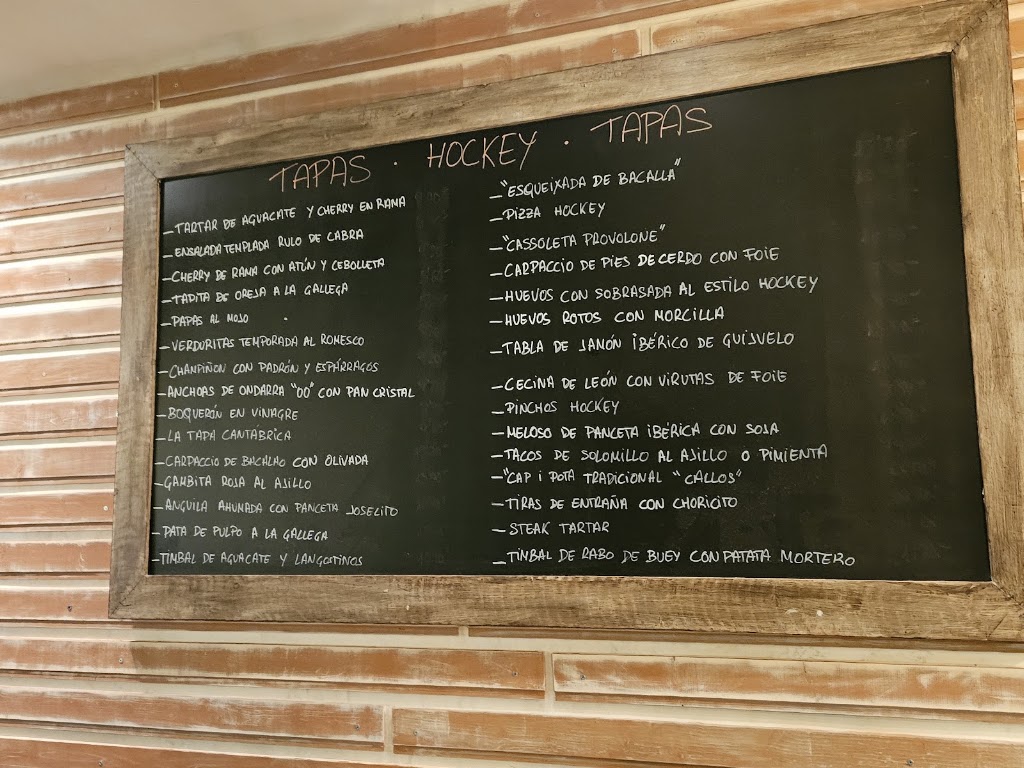 TAPAS · HOCKEY · TAPAS
_TARTAR DE AGUACATE Y CHERRY EN RAMA
_ENSALADA TEMPLADA RULO DE CABRA
_CHERRY DE RAMA CON ATÚN Y CEBOLLETA
_TAPITA DE OREJA A LA GALLEGA
_PAPAS AL MOJO
_VERDURITAS TEMPORADA AL ROMESCO
_CHANPIÑON CON PADRÓN Y ESPÁRRAGOS
_ANCHOAS DE ONDARRA "OO" CON PAN CRISTAL
_BOQUERÓN EN VINAGRE
_LA TAPA CANTÁBRICA
_CARPACCIO DE BACALAO CON OLIVADA
_GAMBITA ROJA AL AJILLO
_ANGUILA AHUMADA CON PANCETA JOSELITO
_PATA DE PULPO A LA GALLEGA
_TIMBAL DE AGUACATE Y LANGOSTINOS
_"ESQUEIXADA DE BACALLÀ"
_PIZZA HOCKEY
_"CASSOLETA PROVOLONE"
_CARPACCIO DE PIES DE CERDO CON FOIE
_HUEVOS CON SOBRASADA AL ESTILO HOCKEY
_HUEVOS ROTOS CON MORCILLA
_TABLA DE JAMÓN IBÉRICO DE GUIJUELO
_CECINA DE LEÓN CON VIRUTAS DE FOIE
_PINCHOS HOCKEY
_MELOSO DE PANCETA IBÉRICA CON SOJA
_TACOS DE SOLOMILLO AL AJILLO O PIMIENTA
_"CAP I POTA TRADICIONAL "CALLOS"
_TIRAS DE ENTRAÑA CON CHORICITO
_STEAK TARTAR
_TIMBAL DE RABO DE BUEY CON PATATA MORTERO